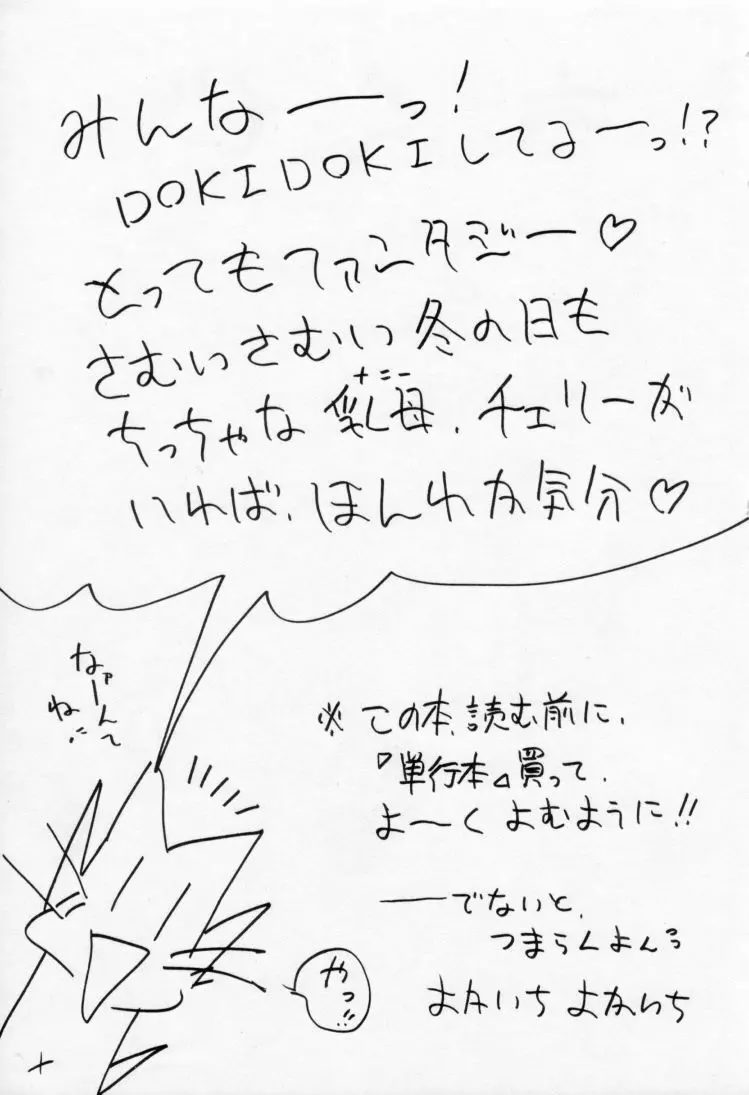 みんなーっ!
DOKIDOKIしてるーっ!?
とってもファンタジー♡
さむいさむい冬の日も
ちっちゃな乳母、チェリーが
ナニー
いれば、ほんわか気分♡
なァーんて
ね!!
※この本、読む前に、
『単行本』買って、
よ〜く よむように!!
──でないと、
つまらんよん3
よかいち よかいち
やっ!!